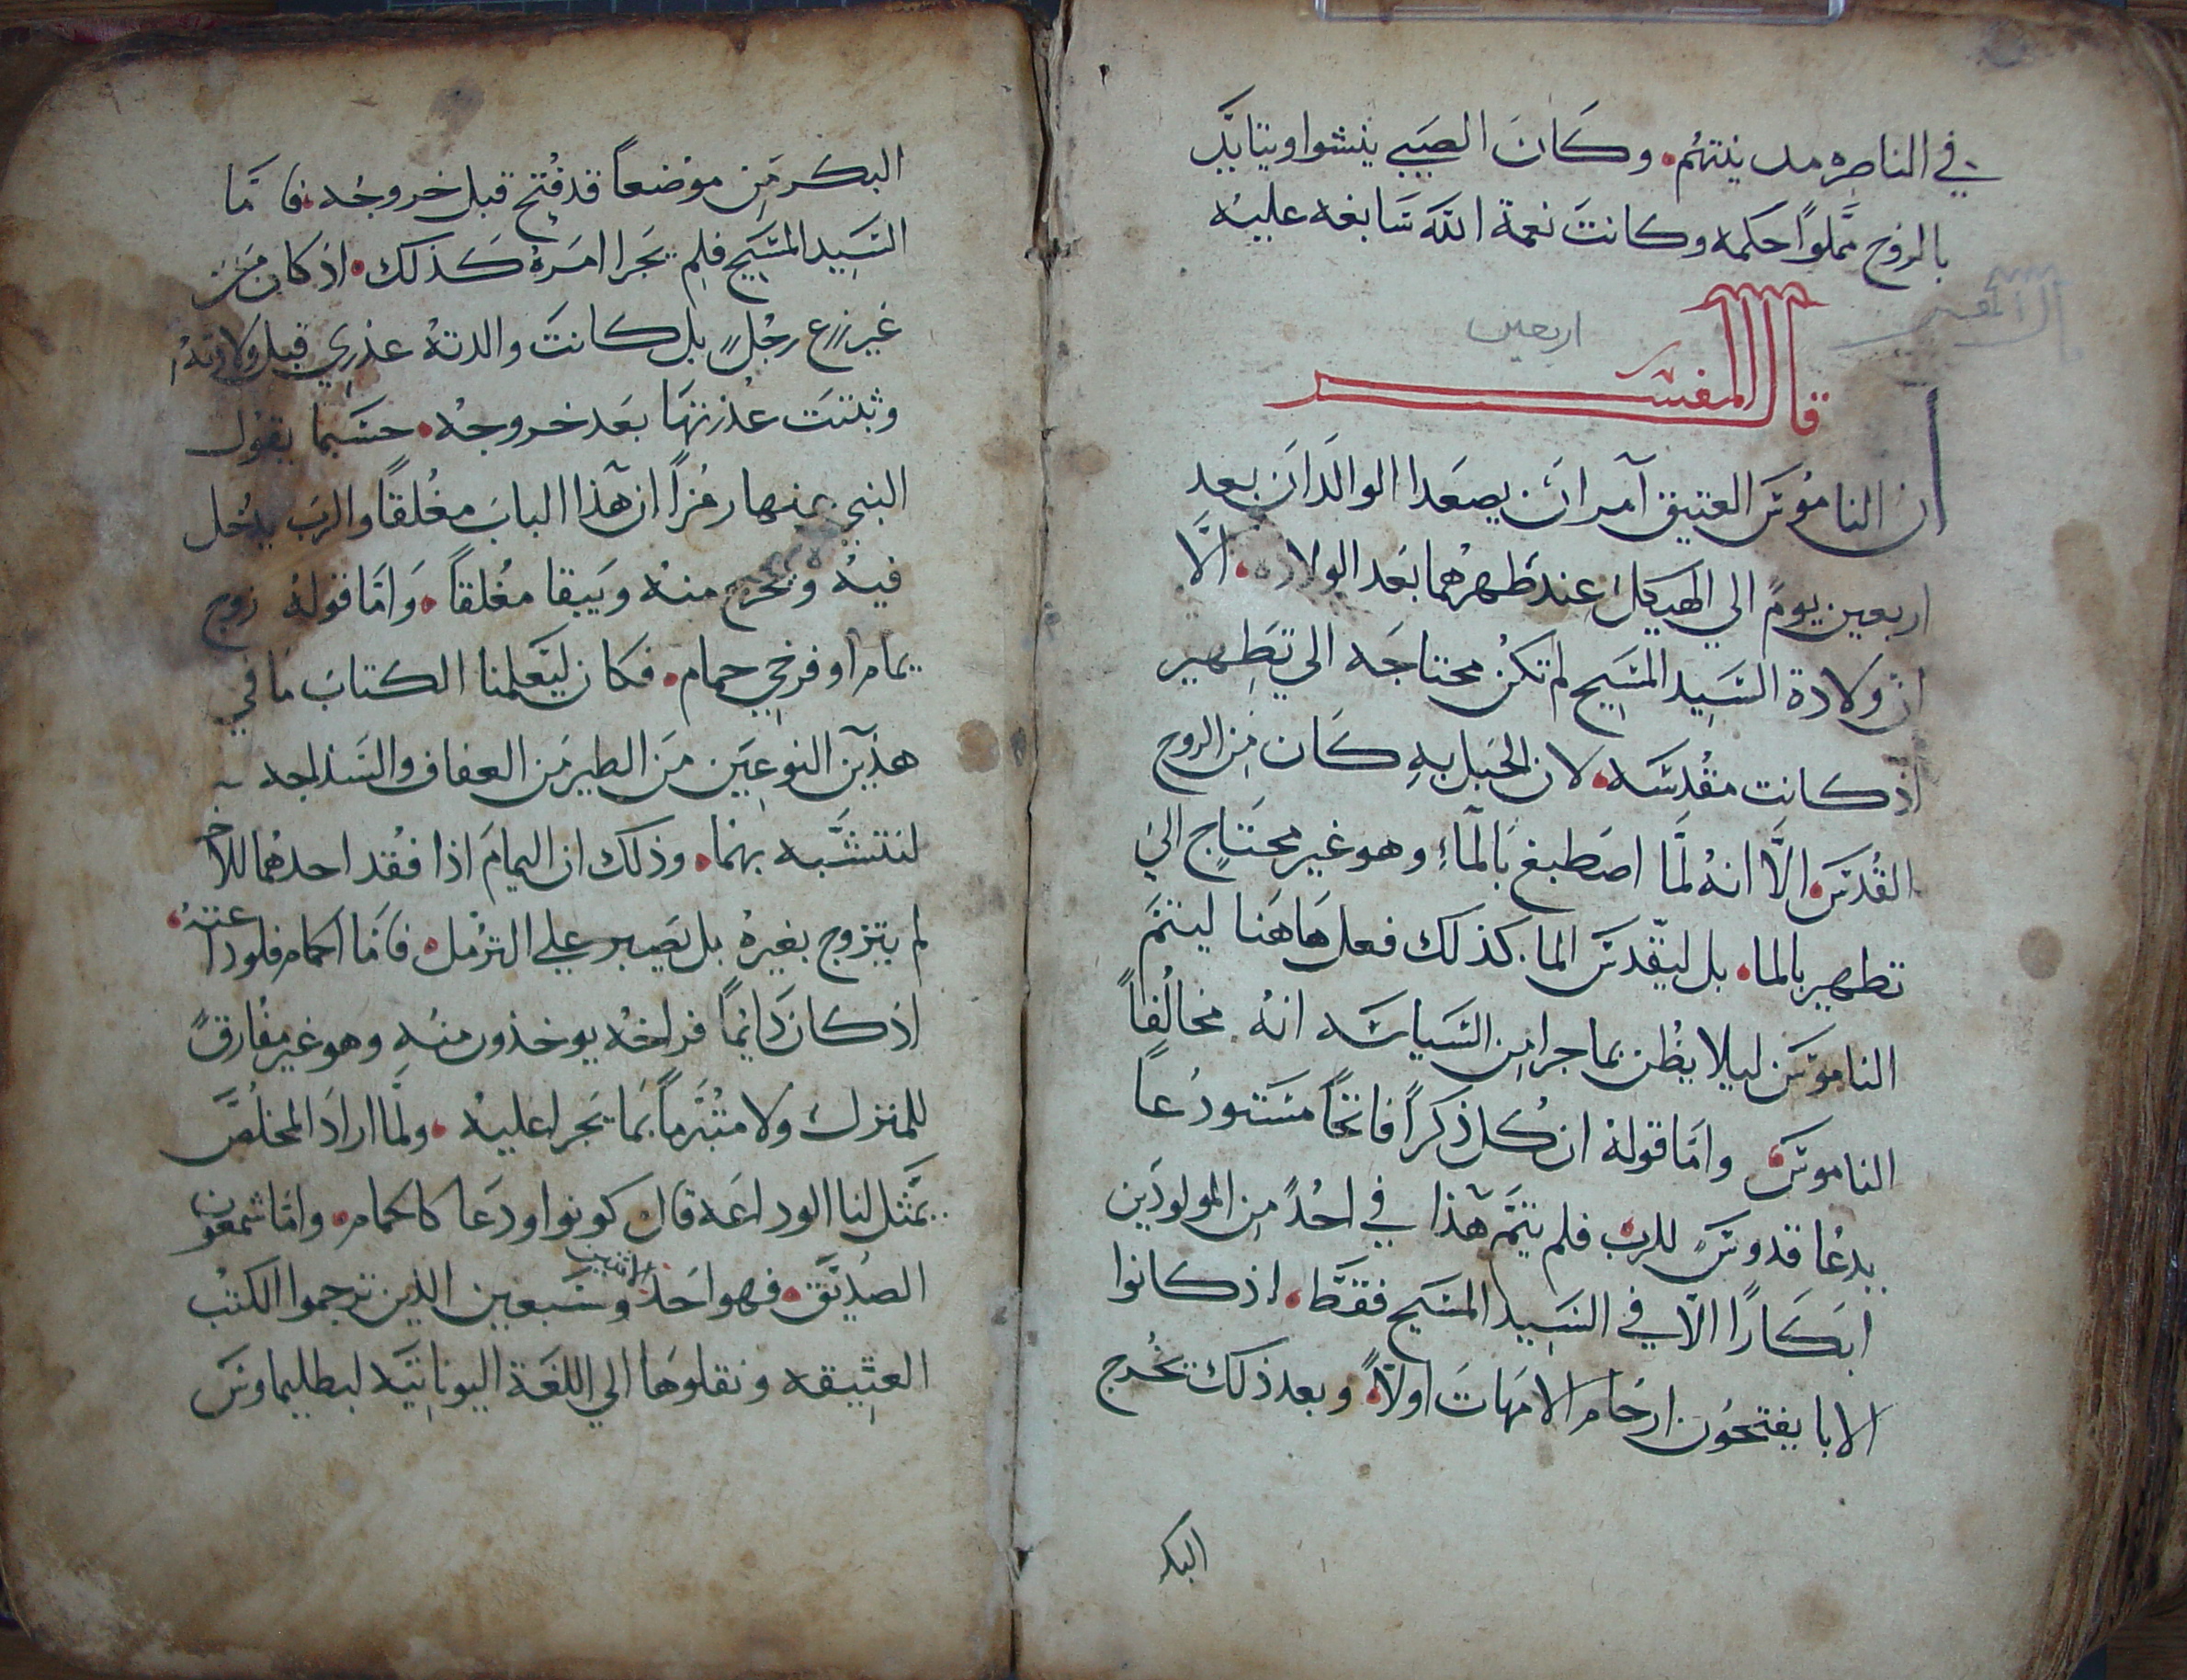 في الناصره مدينتهم، وكان الصبي ينشوا ويتايد
بالروح مملوا حكمه وكانت نعمة الله سابغه عليه
قال المفسر
اربعين
ان الناموس العتيق آمر ان يصعدا الوالدان بعد
اربعين يوم الي الهيكل عند تطهرهما بعد الولاده، الا
ان ولادة السيد المسيح لم تكن محتاجه الي تطهير
اذ كانت مقدسه، لان الحبل به كان من الروح
القدس، الا انه لما اصطبغ بالماء وهو غير محتاج الي
تطهير بالما، بل ليقدس الما. كذلك فعل هاهنا ليتم
الناموس ليلا يظن بما جرا من السياسه انه مخالفا
الناموس، واما قوله ان كل ذكرا فاتحا مستودعا
يدعا قدوس للرب، فلم يتم هذا في احد من المولودين
ابكارا الا في السيد المسيح فقط، اذ كانوا
الابا يفتحون ارحام الامهات اولا، وبعد ذلك تخرج
البكر
البكر من موضعا قد فتح قبل خروجه، فاما
السيد المسيح فلم يجرا امره كذلك، اذ كان من
غير زرع رجل بل كانت والدته عذري قبل ولادته
وثبتت عذرتها بعد خروجه، حسبما يقول
النبي عنها رمزا ان هذا الباب مغلقا والرب يدخل
فيه ويخرج منه ويبقا مغلقا، واما قوله زوج
يمام او فرخي حمام، فكان ليعلمنا الكتاب ما في
هذين النوعين من الطير من العفاف والسذاجه
لنتشبه بهما، وذلك ان اليمام اذا فقد احدهما للاخر
لم يتزوج بغيره بل يصبر علي الترمل، فاما الحمام فلوداعته،
اذ كان دايما فراخه يوخذون منه وهو غير مفارق
للمنزل ولا متبرما بما يجرا عليه، ولما اراد المخلص
يمثل لنا الوداعه قال كونوا ودعا كالحمام، واما شمعون
الصديق، فهو احد وسبعين الذين ترجموا الكتب
العتيقه ونقلوها الي اللغة اليونانيه لبطليماوس